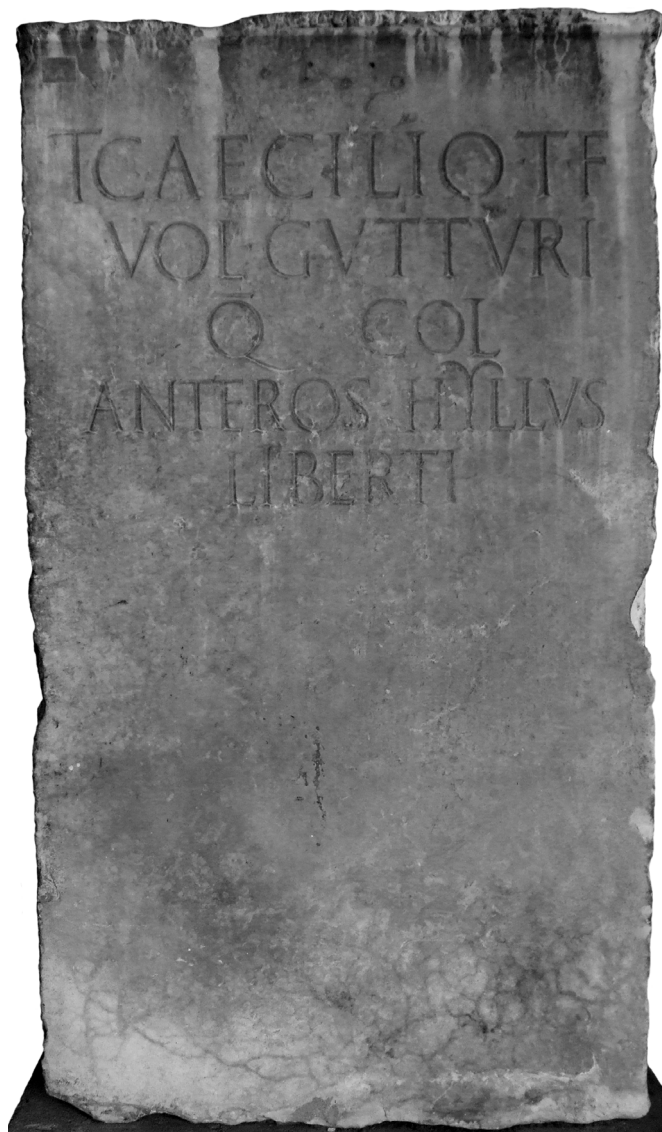 T CAECILIO T F
VOL GVTTVRI
Q̄ COL
ANTEROS HYLLVS
LIBERTI